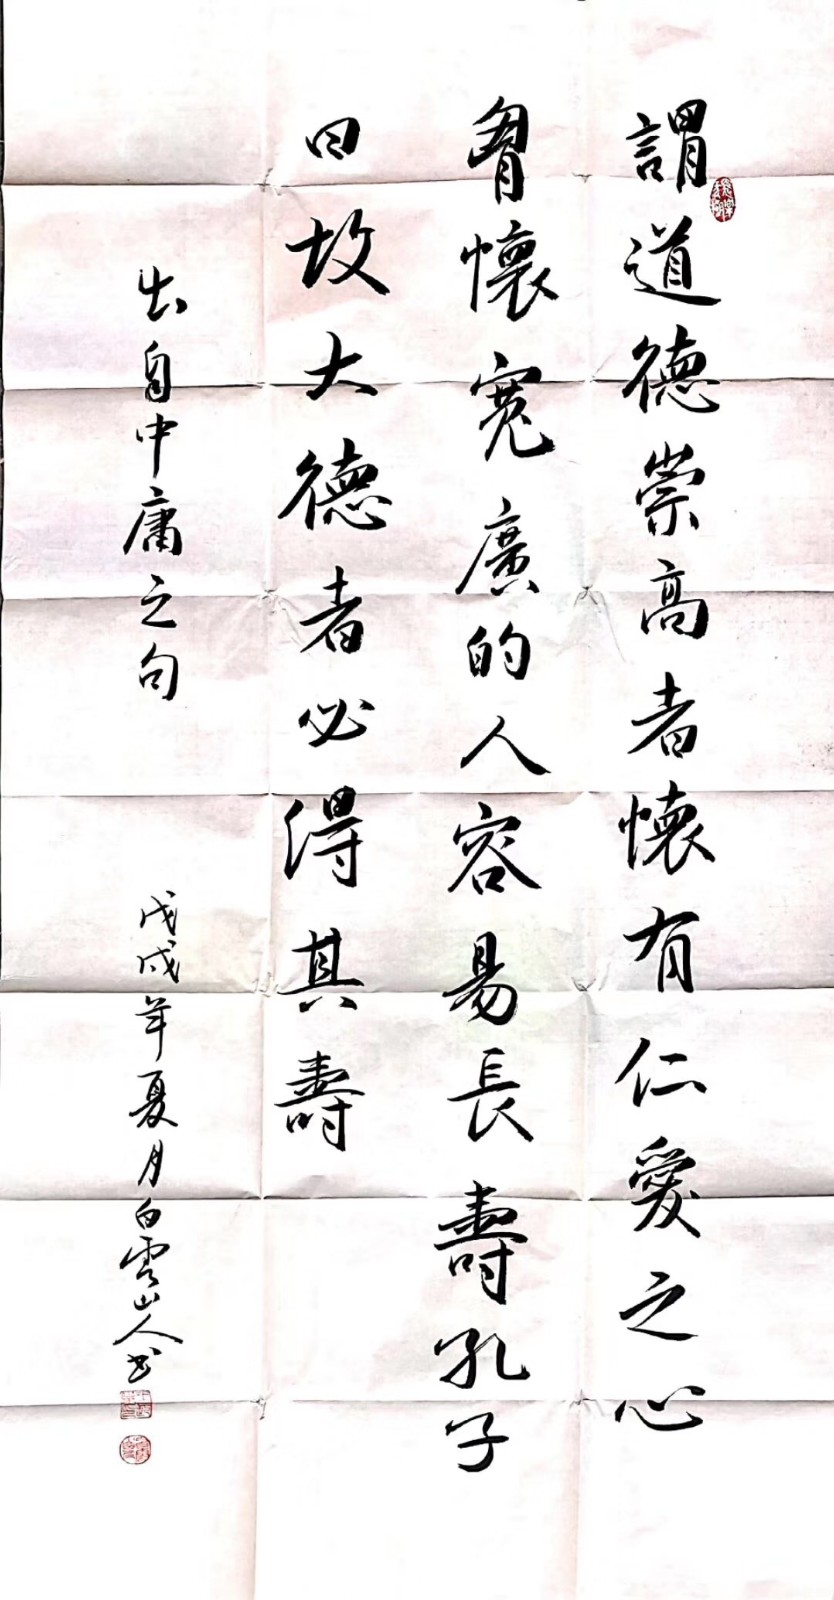 謂道德崇高者懷有仁愛之心
胷懷寬廣的人容易長壽孔子
曰故大德者必得其壽
出自中庸之句
戊戌年夏月白雲山人书